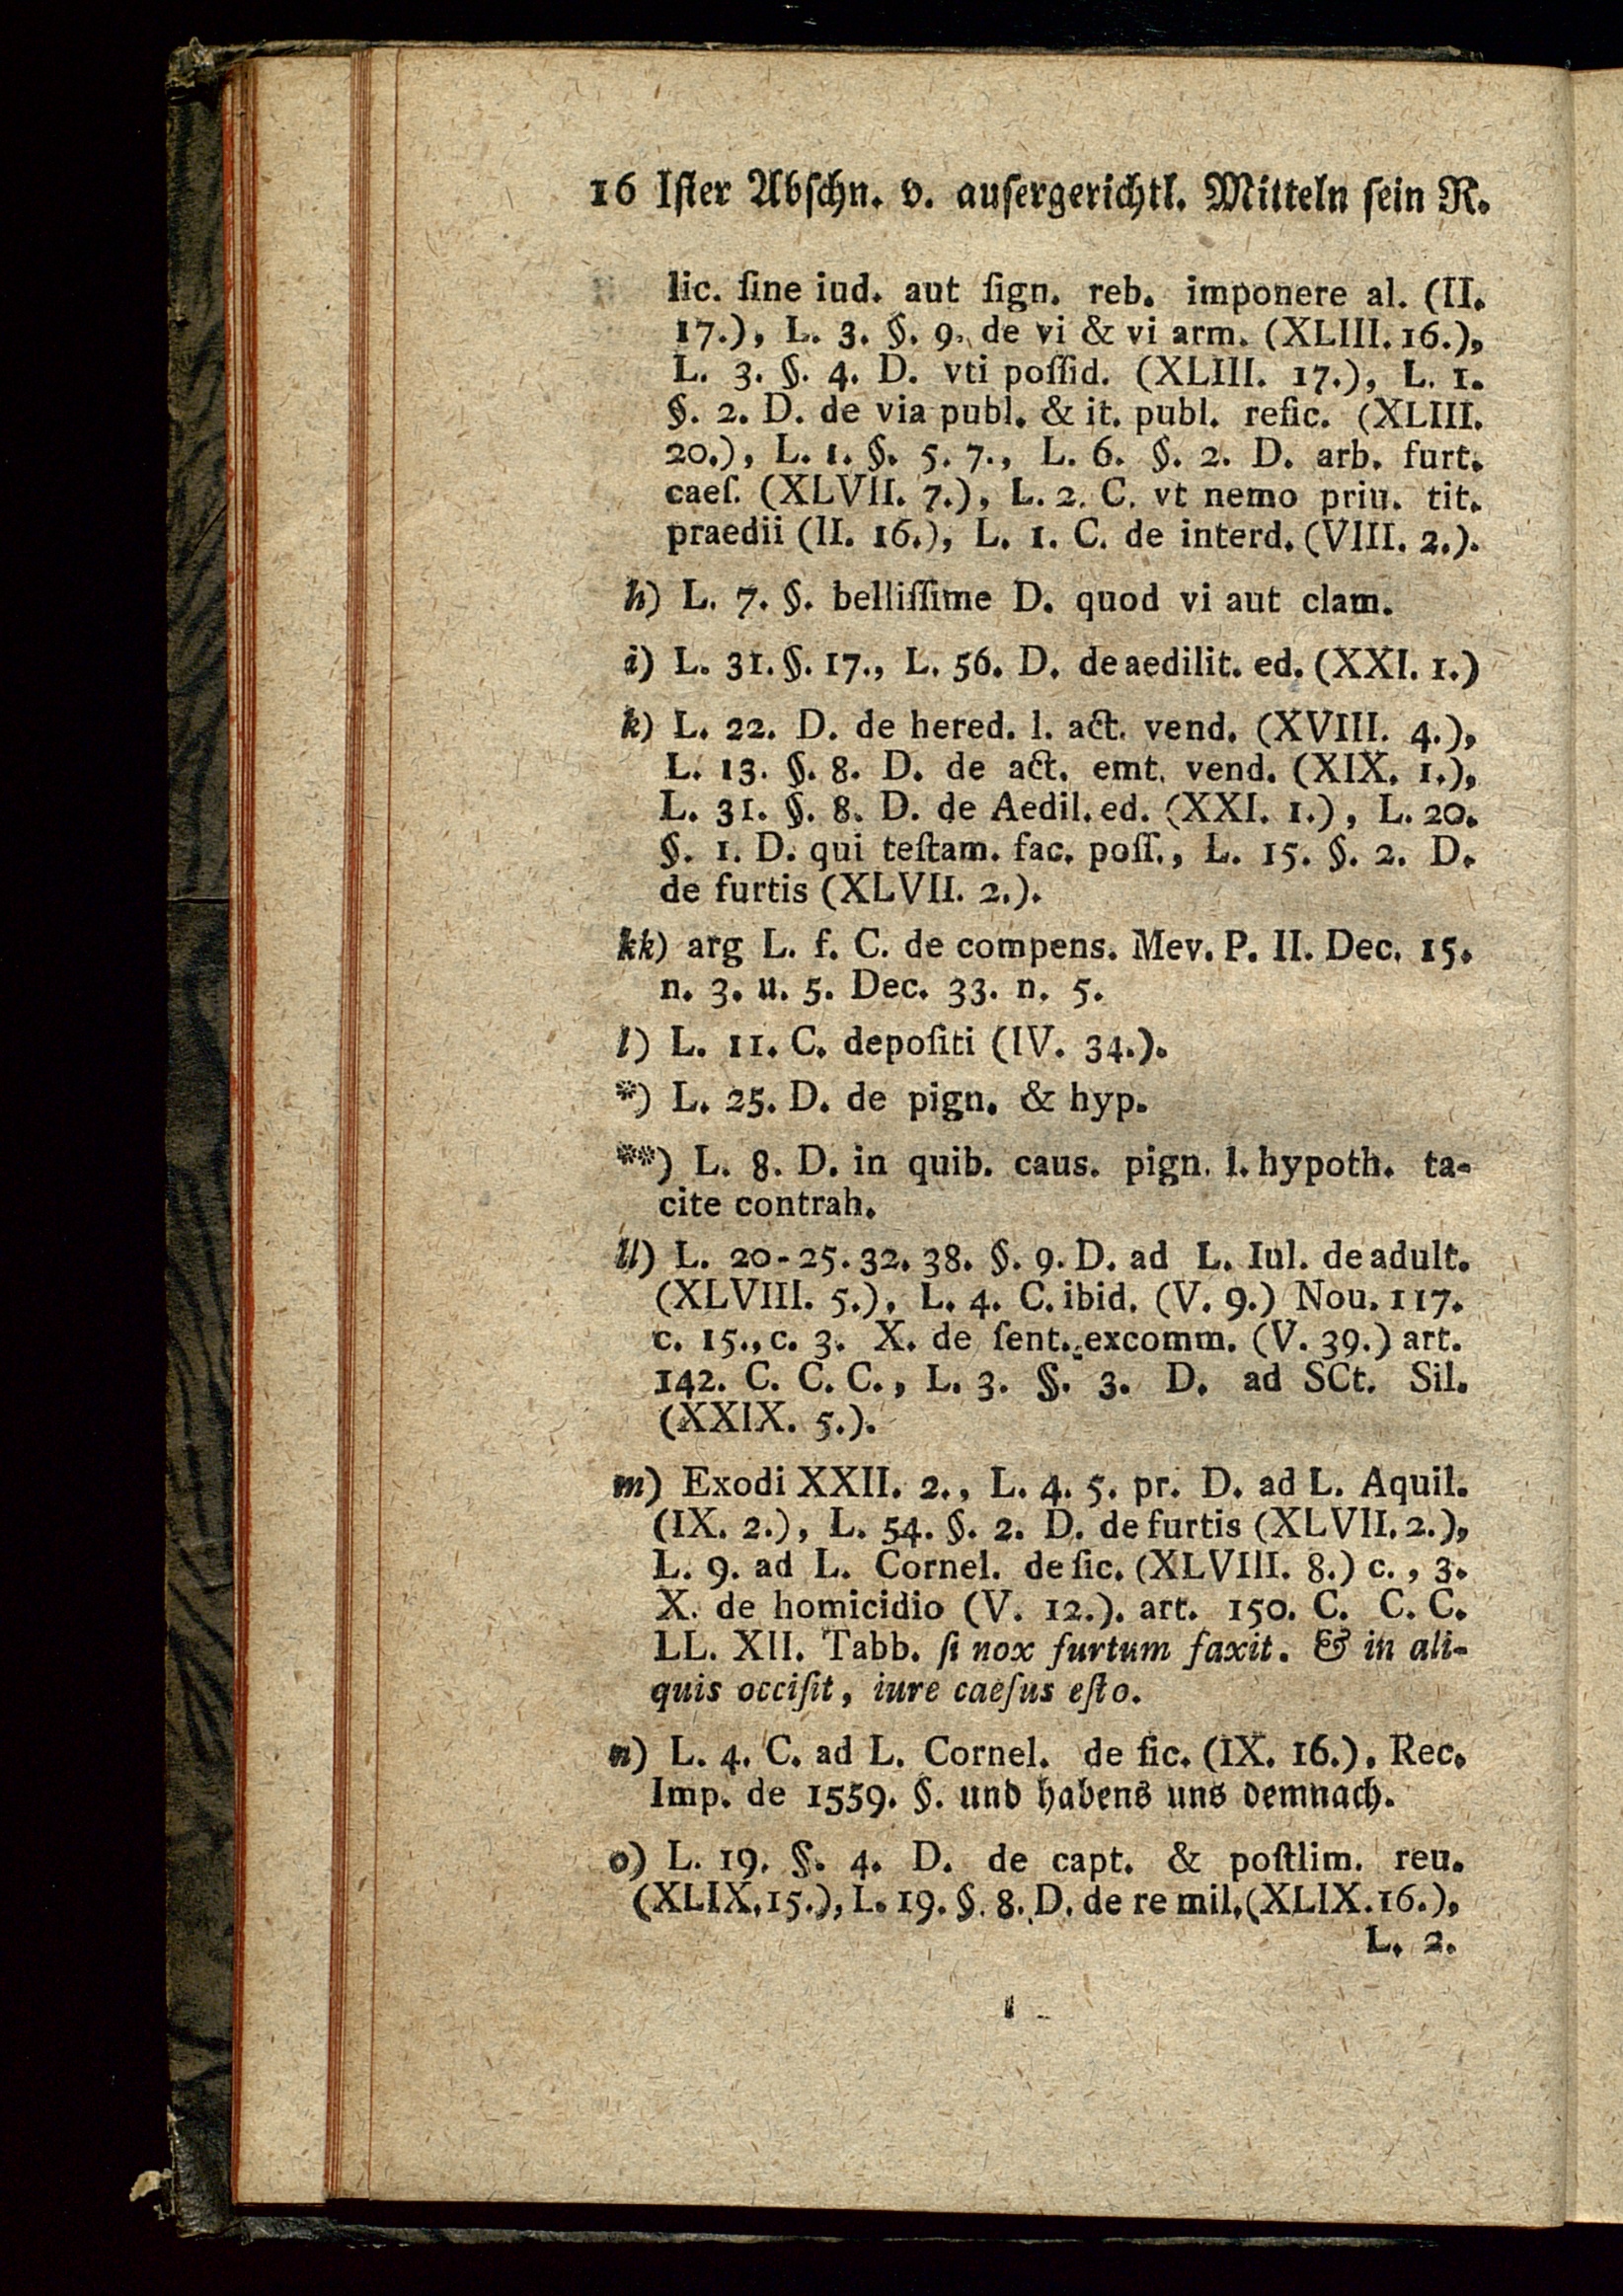 16 Iſter Abſchn. v. auſergerichtl. Mitteln ſein R.
lic. ſine iud. aut ſign. reb. imponere al. (II.
17.), L. 3. §. 9. de vi & vi arm. (XLIII. 16.),
L. 3. §. 4. D. vti poſſid. (XLIII. 17.), L. 1.
§. 2. D. de via publ. & it. publ. refic. (XLIII.
20.), L. 1. §. 5. 7., L. 6. §. 2. D. arb. furt.
caeſ. (XLVII. 7.), L. 2. C. vt nemo priu. tit.
praedii (II. 16.), L. 1. C. de interd. (VIII. 2.).
h) L. 7. §. belliſſime D. quod vi aut clam.
i) L. 31. §. 17., L. 56. D. de aedilit. ed. (XXI. 1.)
k) L. 22. D. de hered. l. act. vend. (XVIII. 4.),
L. 13. §. 8. D. de act. emt. vend. (XIX. 1.),
L. 31. §. 8. D. de Aedil. ed. (XXI. 1.), L. 20.
§. 1. D. qui teſtam. fac. poſſ., L. 15. §. 2. D.
de furtis (XLVII. 2.).
kk) arg L. f. C. de compens. Mev. P. II. Dec. 15.
n. 3. u. 5. Dec. 33. n. 5.
l) L. 11. C. depoſiti (IV. 34.).
*) L. 25. D. de pign. & hyp.
**) L. 8. D. in quib. caus. pign. l. hypoth. ta-
cite contrah.
ll) L. 20-25. 32. 38. §. 9. D. ad L. Iul. de adult.
(XLVIII. 5.), L. 4. C. ibid. (V. 9.) Nou. 117.
c. 15., c. 3. X. de ſent. excomm. (V. 39.) art.
142. C. C. C., L. 3. §. 3. D. ad SCt. Sil.
(XXIX. 5.).
m) Exodi XXII. 2., L. 4. 5. pr. D. ad L. Aquil.
(IX. 2.), L. 54. §. 2. D. de furtis (XLVII. 2.),
L. 9. ad L. Cornel. de ſic. (XLVIII. 8.) c., 3.
X. de homicidio (V. 12.). art. 150. C. C. C.
LL. XII. Tabb. ſi nox furtum faxit. & in ali-
quis occiſit, iure caeſus eſto.
n) L. 4. C. ad L. Cornel. de ſic. (IX. 16.). Rec.
Imp. de 1559. §. und habens uns demnach.
o) L. 19. §. 4. D. de capt. & poſtlim. reu.
(XLIX. 15.), L. 19. §. 8. D. de re mil. (XLIX. 16.),
L. 2.